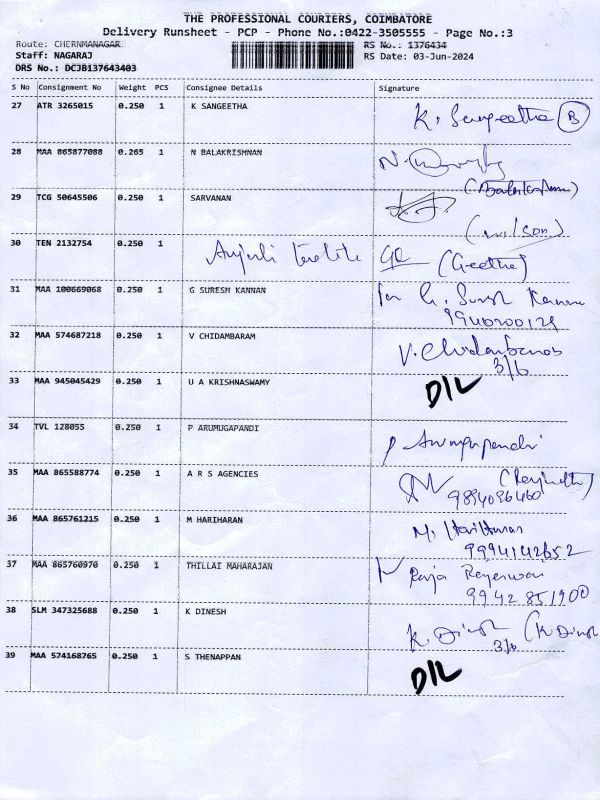 THE PROFESSIONAL COURIERS, COIMBATORE
Delivery Runsheet - PCP - Phone No.:0422-3505555 - Page No.:3
Route: CHERNMANAGAR
RS No.: 1376434
Staff: NAGARAJ
RS Date: 03-Jun-2024
DRS No.: DCJB137643403
S No Consignment No Weight PCS Consignee Details Signature
27 ATR 3265015 0.250 1 K SANGEETHA K. Sangeetha B
28 MAA 865877088 0.265 1 N BALAKRISHNAN N.
29 TCG 50645506 0.250 1 SARVANAN
(wilson)
30 TEN 2132754 0.250 1 Anjali (Geetha)
31 MAA 100669068 0.250 1 G SURESH KANNAN for G. Suresh Kannan
9940200129
32 MAA 574687218 0.250 1 V CHIDAMBARAM V. Chidambaram
3/6
33 MAA 945045429 0.250 1 U A KRISHNASWAMY D/L
34 TVL 128055 0.250 1 P ARUMUGAPANDI P Arumugapandi
35 MAA 865588774 0.250 1 A R S AGENCIES
9894096460
36 MAA 865761215 0.250 1 M HARIHARAN M. Hariharan
9994142652
37 MAA 865760970 0.250 1 THILLAI MAHARAJAN Raja Rajeswari
9942851900
38 SLM 347325688 0.250 1 K DINESH K. Dinesh (K Dinesh
3/6
39 MAA 574168765 0.250 1 S THENAPPAN D/L